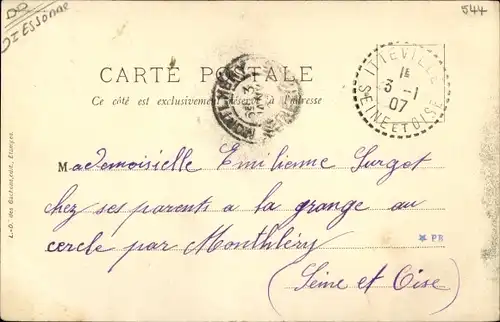 DD
Essonne
544
CARTE POSTALE
Ce côté est exclusivement réservé à l'adresse
ITTEVILLE
1E
3 -1
07
SEINE ET OISE
MONTLHERY
Mademoisielle Emilienne Surget
chez ses parents a la grange au
cercle par Monthléry
* PR
(Seine et Oise)